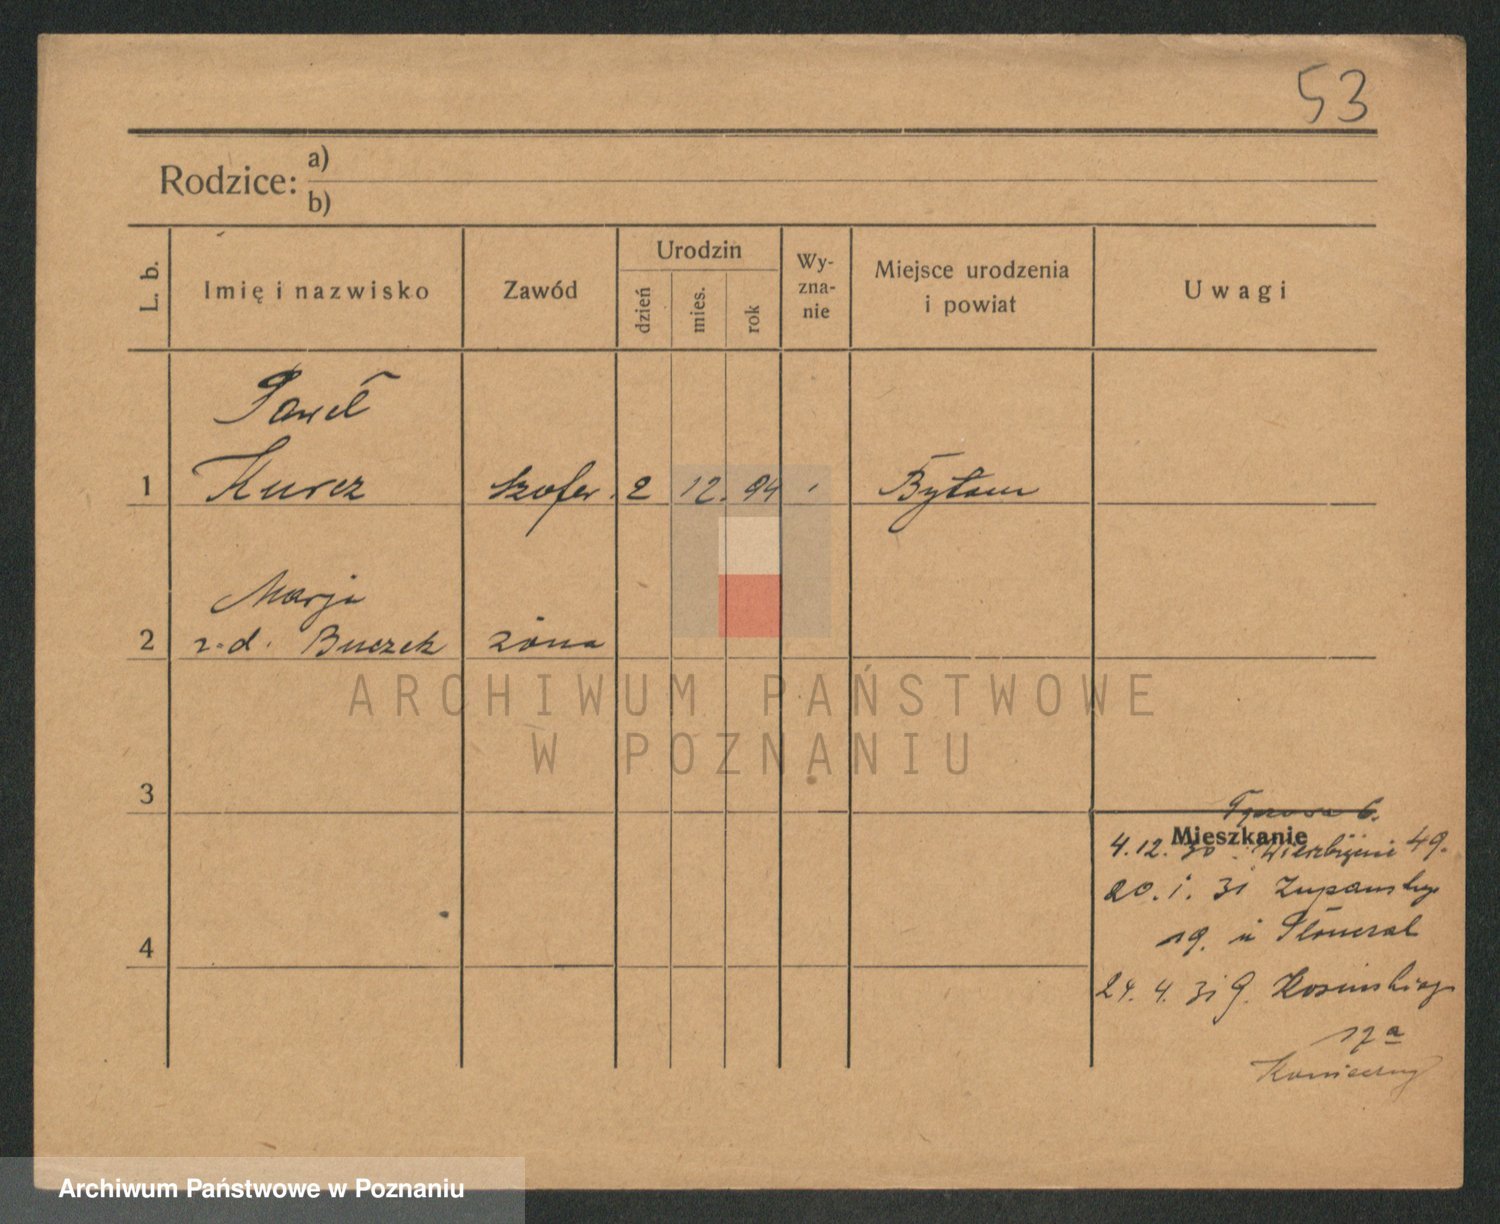 53
Rodzice: a)
b)
L. b. Imię i nazwisko Zawód Urodzin dzień mies. rok Wy-zna-nie Miejsce urodzenia i powiat Uwagi
Paweł
1 Kurcz szofer. 2 12. 94 Bytom
Marja
2 z. d. Buczek żona
ARCHIWUM PAŃSTWOWE
W POZNANIU
3
6.
Mieszkanie
4.12. 30 49.
20. 1. 31 Żupańskiego
19. u
4
24. 4. 31 9. Kosińskiego
17a
Konieczny
Archiwum Państwowe w Poznaniu